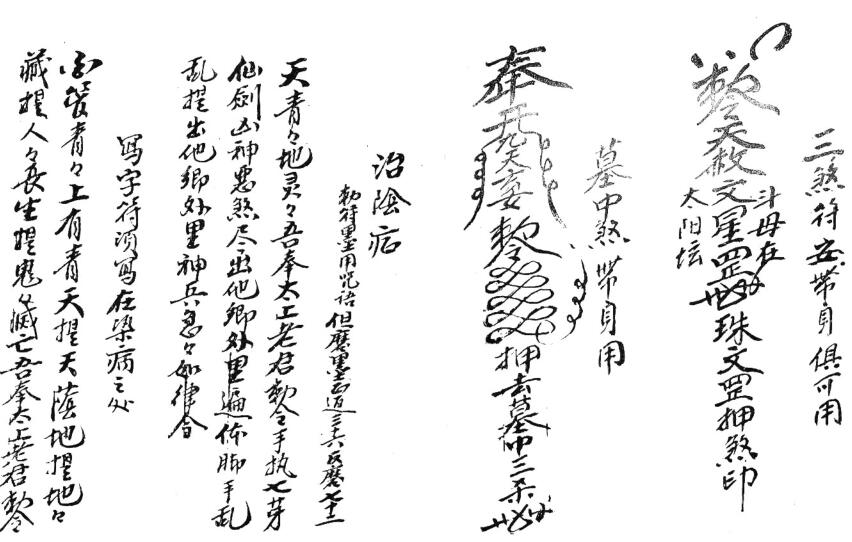 三煞符安带身俱可用
敕天赦文星罡 珠文罡押煞印
斗母在
太阳坛
墓中煞带身用
奉 九天玄 敕 押去墓中三杀
治陰症
勅符墨用咒语但磨墨 道三六反磨七十二
天青々地灵々吾奉太上老君勅令手执七芽
仙劍凶神惡煞尽出他鄉外里遍体脚手乱
乱提出他鄉外里神兵急々如律令
写字符须写在染病之处
青々上有青天提天蔭地提地々
藏提人々長生提鬼々滅亡吾奉太上老君勅令